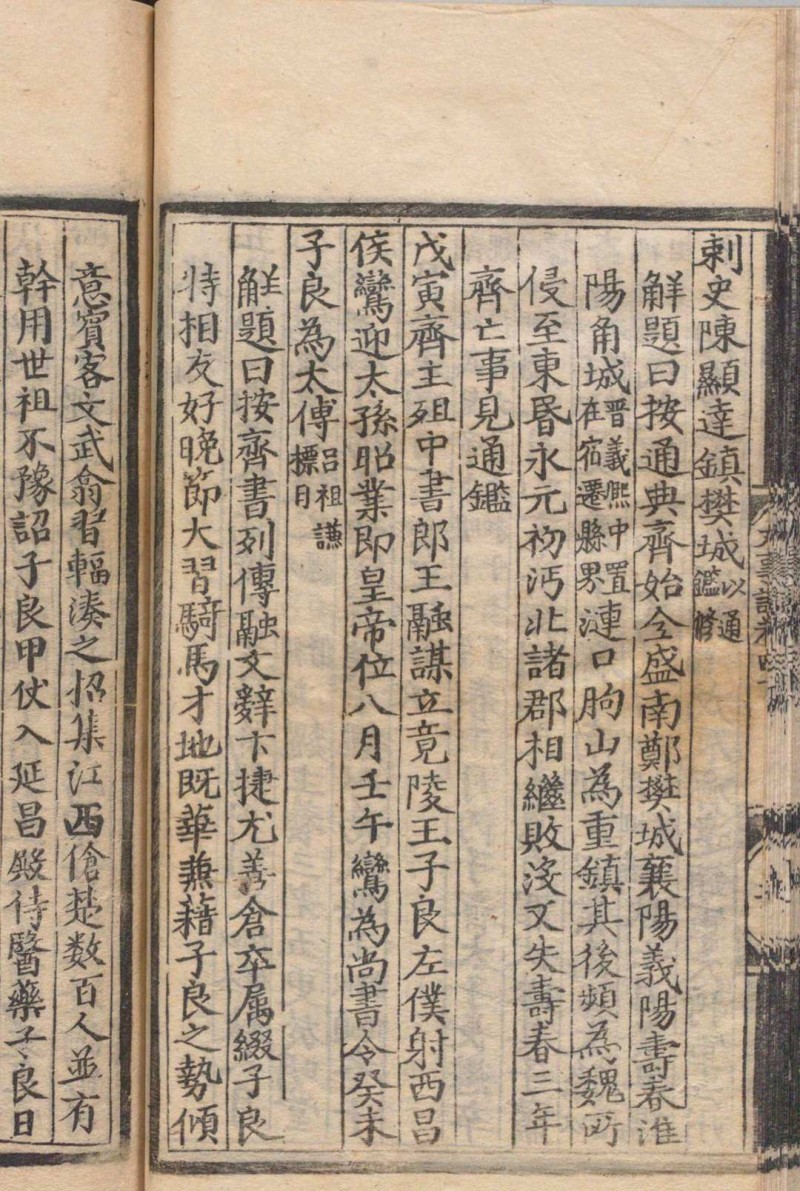 刺史陳顯達鎮樊城以通鑑修
解題曰按通典齊始全盛南鄭樊城襄陽義陽壽春淮
陽角城晉義熙中置在宿遷縣界漣口朐山為重鎮其後頻為魏所
侵至東昬永元初沔北諸郡相繼敗没又失壽春三年
齊亡事見通鑑
戊寅齊主殂中書郎王融謀立竟陵王子良左僕射西昌
侯鸞迎太孫昭業即皇帝位八月壬午鸞為尚書令癸未
子良為太傅吕祖謙標目
解題曰按齊書列傳融文辭卞捷尤善倉卒属綴子良
特相友好晚節大習騎馬才地既華兼藉子良之勢傾
意賓客文武翕習輻湊之招集江西傖楚数百人並有
幹用世祖不豫詔子良甲仗入延昌殿侍醫藥子良日